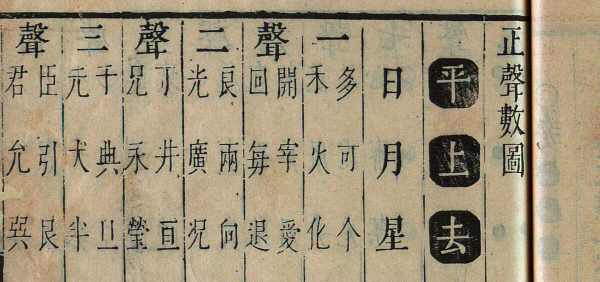 正聲數圖
平上去
日月星
一
多可个
禾火化
聲
開宰愛
回每退
二
良兩向
光廣况
聲
丁井亘
兄永瑩
三
千典旦
元犬半
聲
臣引艮
君允巽